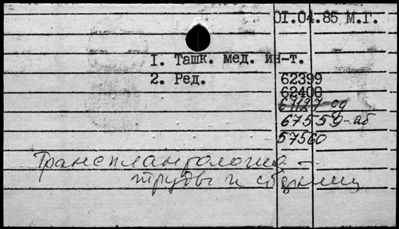 01.04.85 М.Г.
1. Ташк. мед. ин-т.
2. Ред.
62399
62400
67559-аб
57560
Трансплантология -
труды и сборники